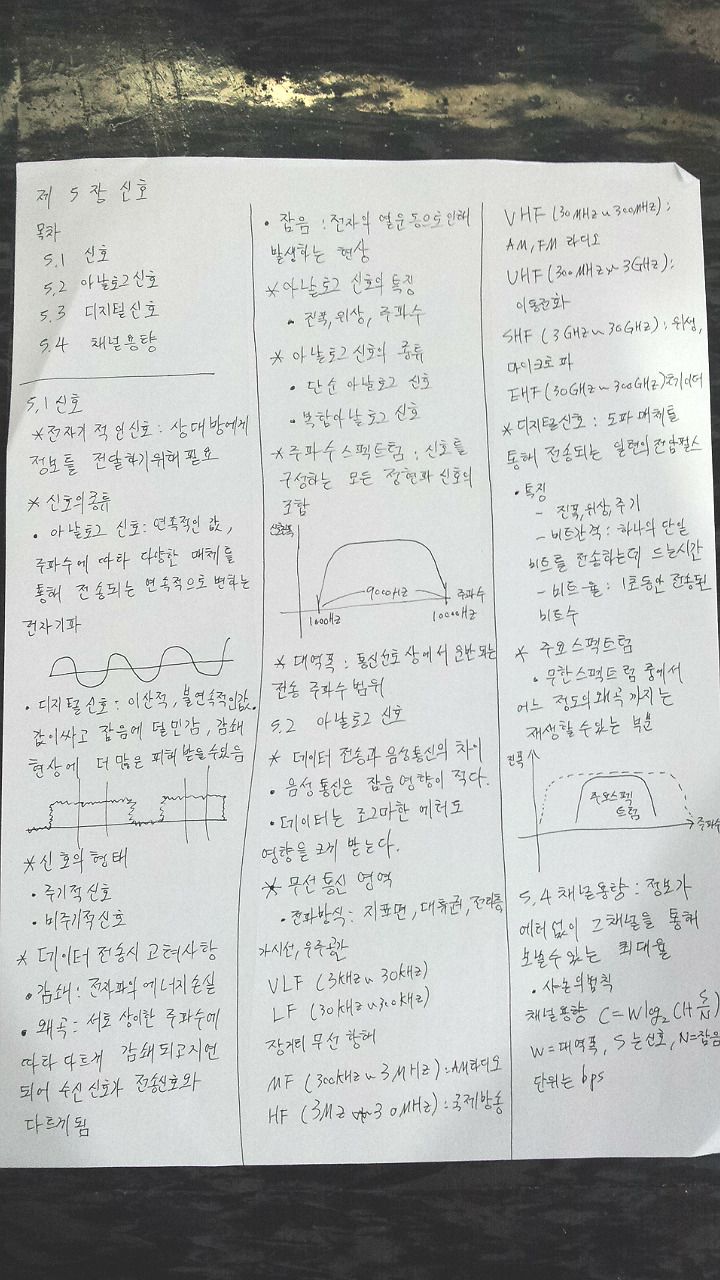 제 5 장 신호
목차
5.1 신호
5.2 아날로그신호
5.3 디지털신호
5.4 채널용량
5.1 신호
*전자기적인신호 : 상대방에게
정보를 전달하기위해 필요
* 신호의종류
• 아날로그 신호 : 연속적인 값,
주파수에 따라 다양한 매체를
통해 전송되는 연속적으로 변하는
전자기파
• 디지털신호 : 이산적, 불연속적인값.
값이싸고 잡음에 덜민감, 감쇄
현상에 더 많은 피해 받을수있음
*신호의 형태
• 주기적신호
• 비주기적신호
* 데이터 전송시 고려사항
• 감쇄 : 전자파의 에너지손실
• 왜곡 : 서로 상이한 주파수에
따라 다르게 감쇄 되고지연
되어 수신 신호가 전송신호와
다르게됨
• 잡음 : 전자의 열운동으로인해
발생하는 현상
*아날로그 신호의 특징
• 진폭, 위상, 주파수
* 아날로그신호의 종류
• 단순 아날로그 신호
• 복합아날로그 신호
*주파수스펙트럼 : 신호를
구성하는 모든 정현파 신호의
조합
신호폭
9000HZ
주파수
1000HZ
10000HZ
* 대역폭 : 통신선로 상에서 운반되는
전송 주파수 범위
5.2 아날로그 신호
* 데이터 전송과 음성통신의 차이
• 음성통신은 잡음 영향이 적다.
• 데이터는 조그마한 에러도
영향을 크게 받는다.
* 무선통신 영역
• 전파방식 : 지표면, 대류권, 전리층
가시선, 우주공간
VLF (3kHz~30kHz)
LF (30kHz~300kHz)
장거리 무선 항해
MF (300kHz~3MHz) : AM라디오
HF (3MZ~30MHz) : 국제방송
VHF (30MHz~300MHz) :
AM, FM 라디오
UHF (300MHz~3GHz) :
이동전화
SHF (3GHz~30GHz) : 위성,
마이크로파
EHF (30GHz~300GHz)
*디지털신호 : 도파매체를
통해 전송되는 일련의전압펄스
• 특징
- 진폭, 위상, 주기
- 비트간격 : 하나의 단일
비트를 전송하는데 드는시간
- 비트-율 : 1초동안 전송된
비트수
* 주요스펙트럼
• 무한스펙트럼 중에서
어느 정도의왜곡 까지는
재생할수있는 부분
진폭
주요스펙
트럼
주파수
5.4 채널용량 : 정보가
에러없이 그채널을 통해
보낼수있는 최대율
• 샤논의법칙
채널용량 C=Wlog₂(1+S/N)
W=대역폭, S는신호, N=잡음
단위는 bps